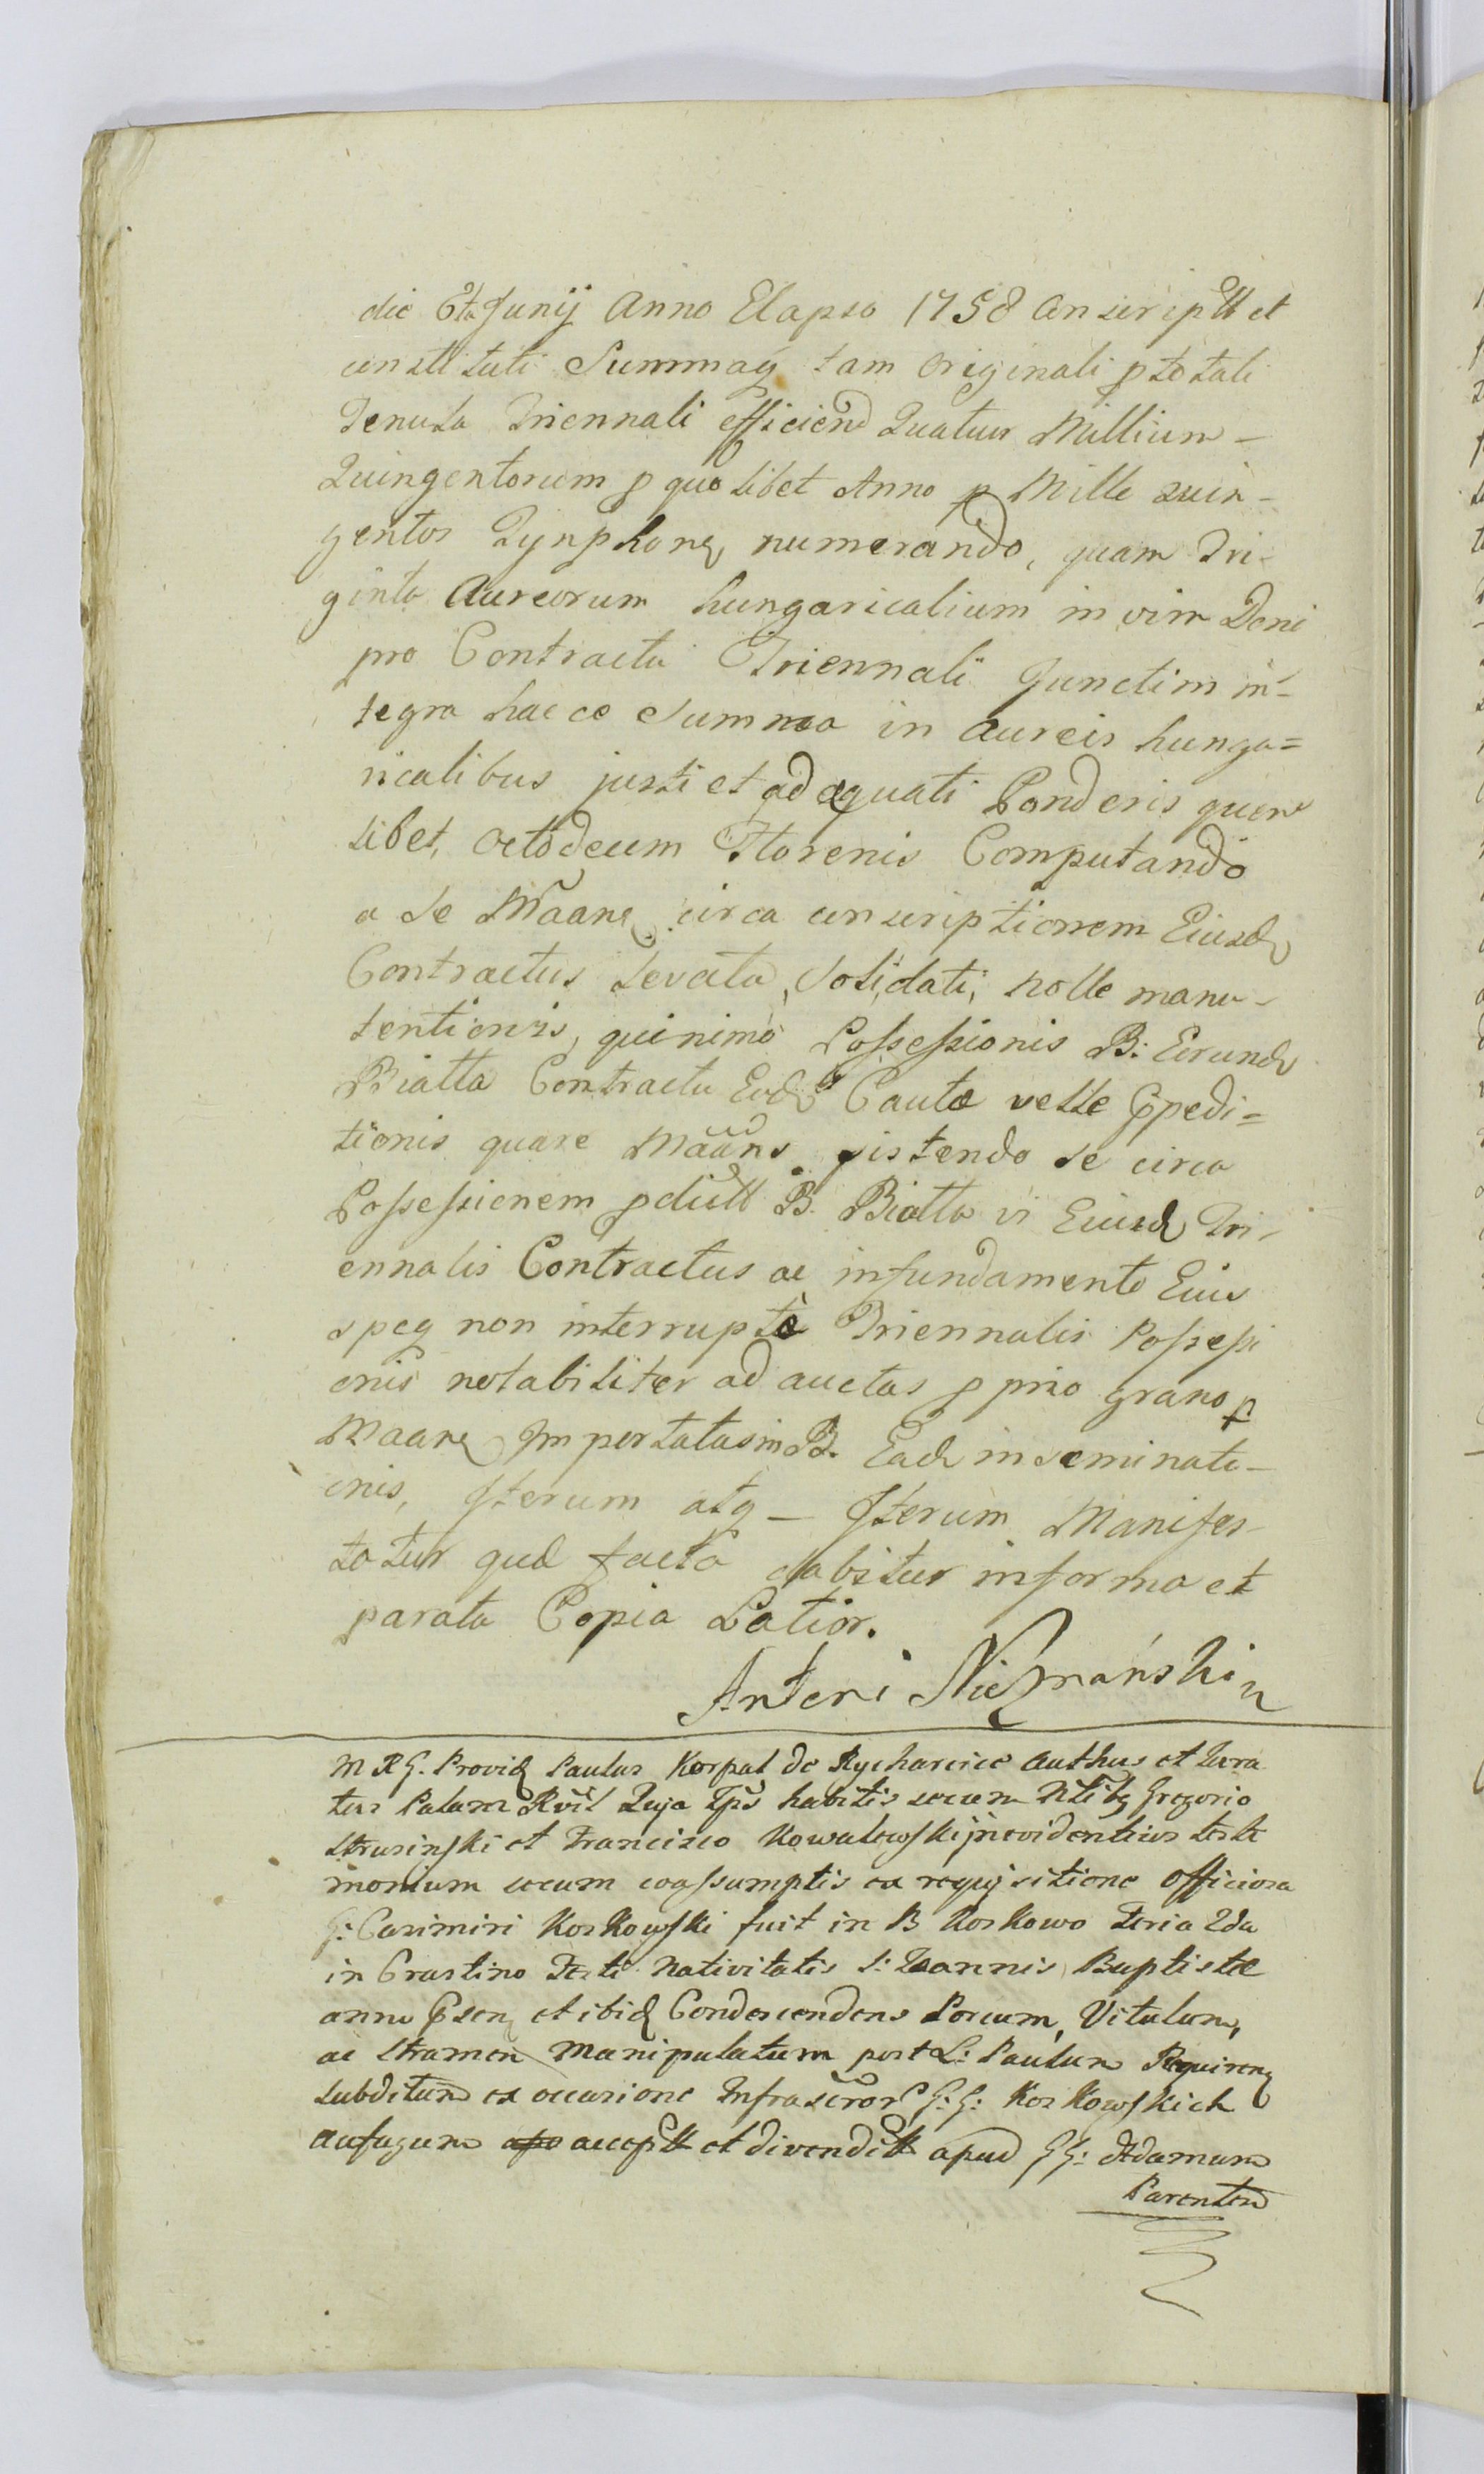 die 6ta Junij Anno Elapso 1758 Conscriptt et
constituti Summaq tam Originali p totali
Tenuta Triennali efficiend Quatuor Millium -
Quingentorum p quolibet Anno p Mille Quin-
gentos Tynphonę numerando, quam Tri-
ginta Aureorum hungaricalium in vim Doni
pro Contractu Triennali Junctim in-
tegra haece Summa in Aureis hunga=
ricalibus justi et adæquati Ponderis quem
libet, Octodecem Florenis Computando
a se Maane circa conscriptionem Eiusd
Contractus Levata, Solidati, nolle manu-
tentionis, quinimo Possessionis B: Eorund
Biatta Contractu Eod Cautæ velle Expedi=
tionis quare Maans sistendo se circa
Possessionem pdictt B. Biatta vi Eiusd Tri-
ennalis Contractus ac infundamento Eius
speq non interruptè Triennalis Possessi
onis notabiliter ad auctas p prio grano p
Maane Importatas in B. Ead inseminati-
onis, Iterum atq - Iterum Manifes-
tatur qud facto dabitur informa et
parata Copia Latior.
Anteni Niezmański
M R G. Provid Paulus Korpal de Rycharcice Authus et Iura
tus Palam Rvil Quja Ips habitis secum Ntibg Gregorio
Strusinski et Francisco Kowalewski providentius testi
monium secum coassumptis ex requisitione Officiosa
G: Casimiri Koskowski fuit in B Koskowo Feria 2da
in Crastino Festi Nativitatis S: Ioannis Baptistæ
anno Psen et ibid Condescendens Porcum, Vitulum,
ac Stramen Manipulatum post L: Paulum Requiren
Subditum ex occasione Infrascror G: G: Koskowskich
aufugum acceptt et divenditt apud GG: Adamum
Parentem